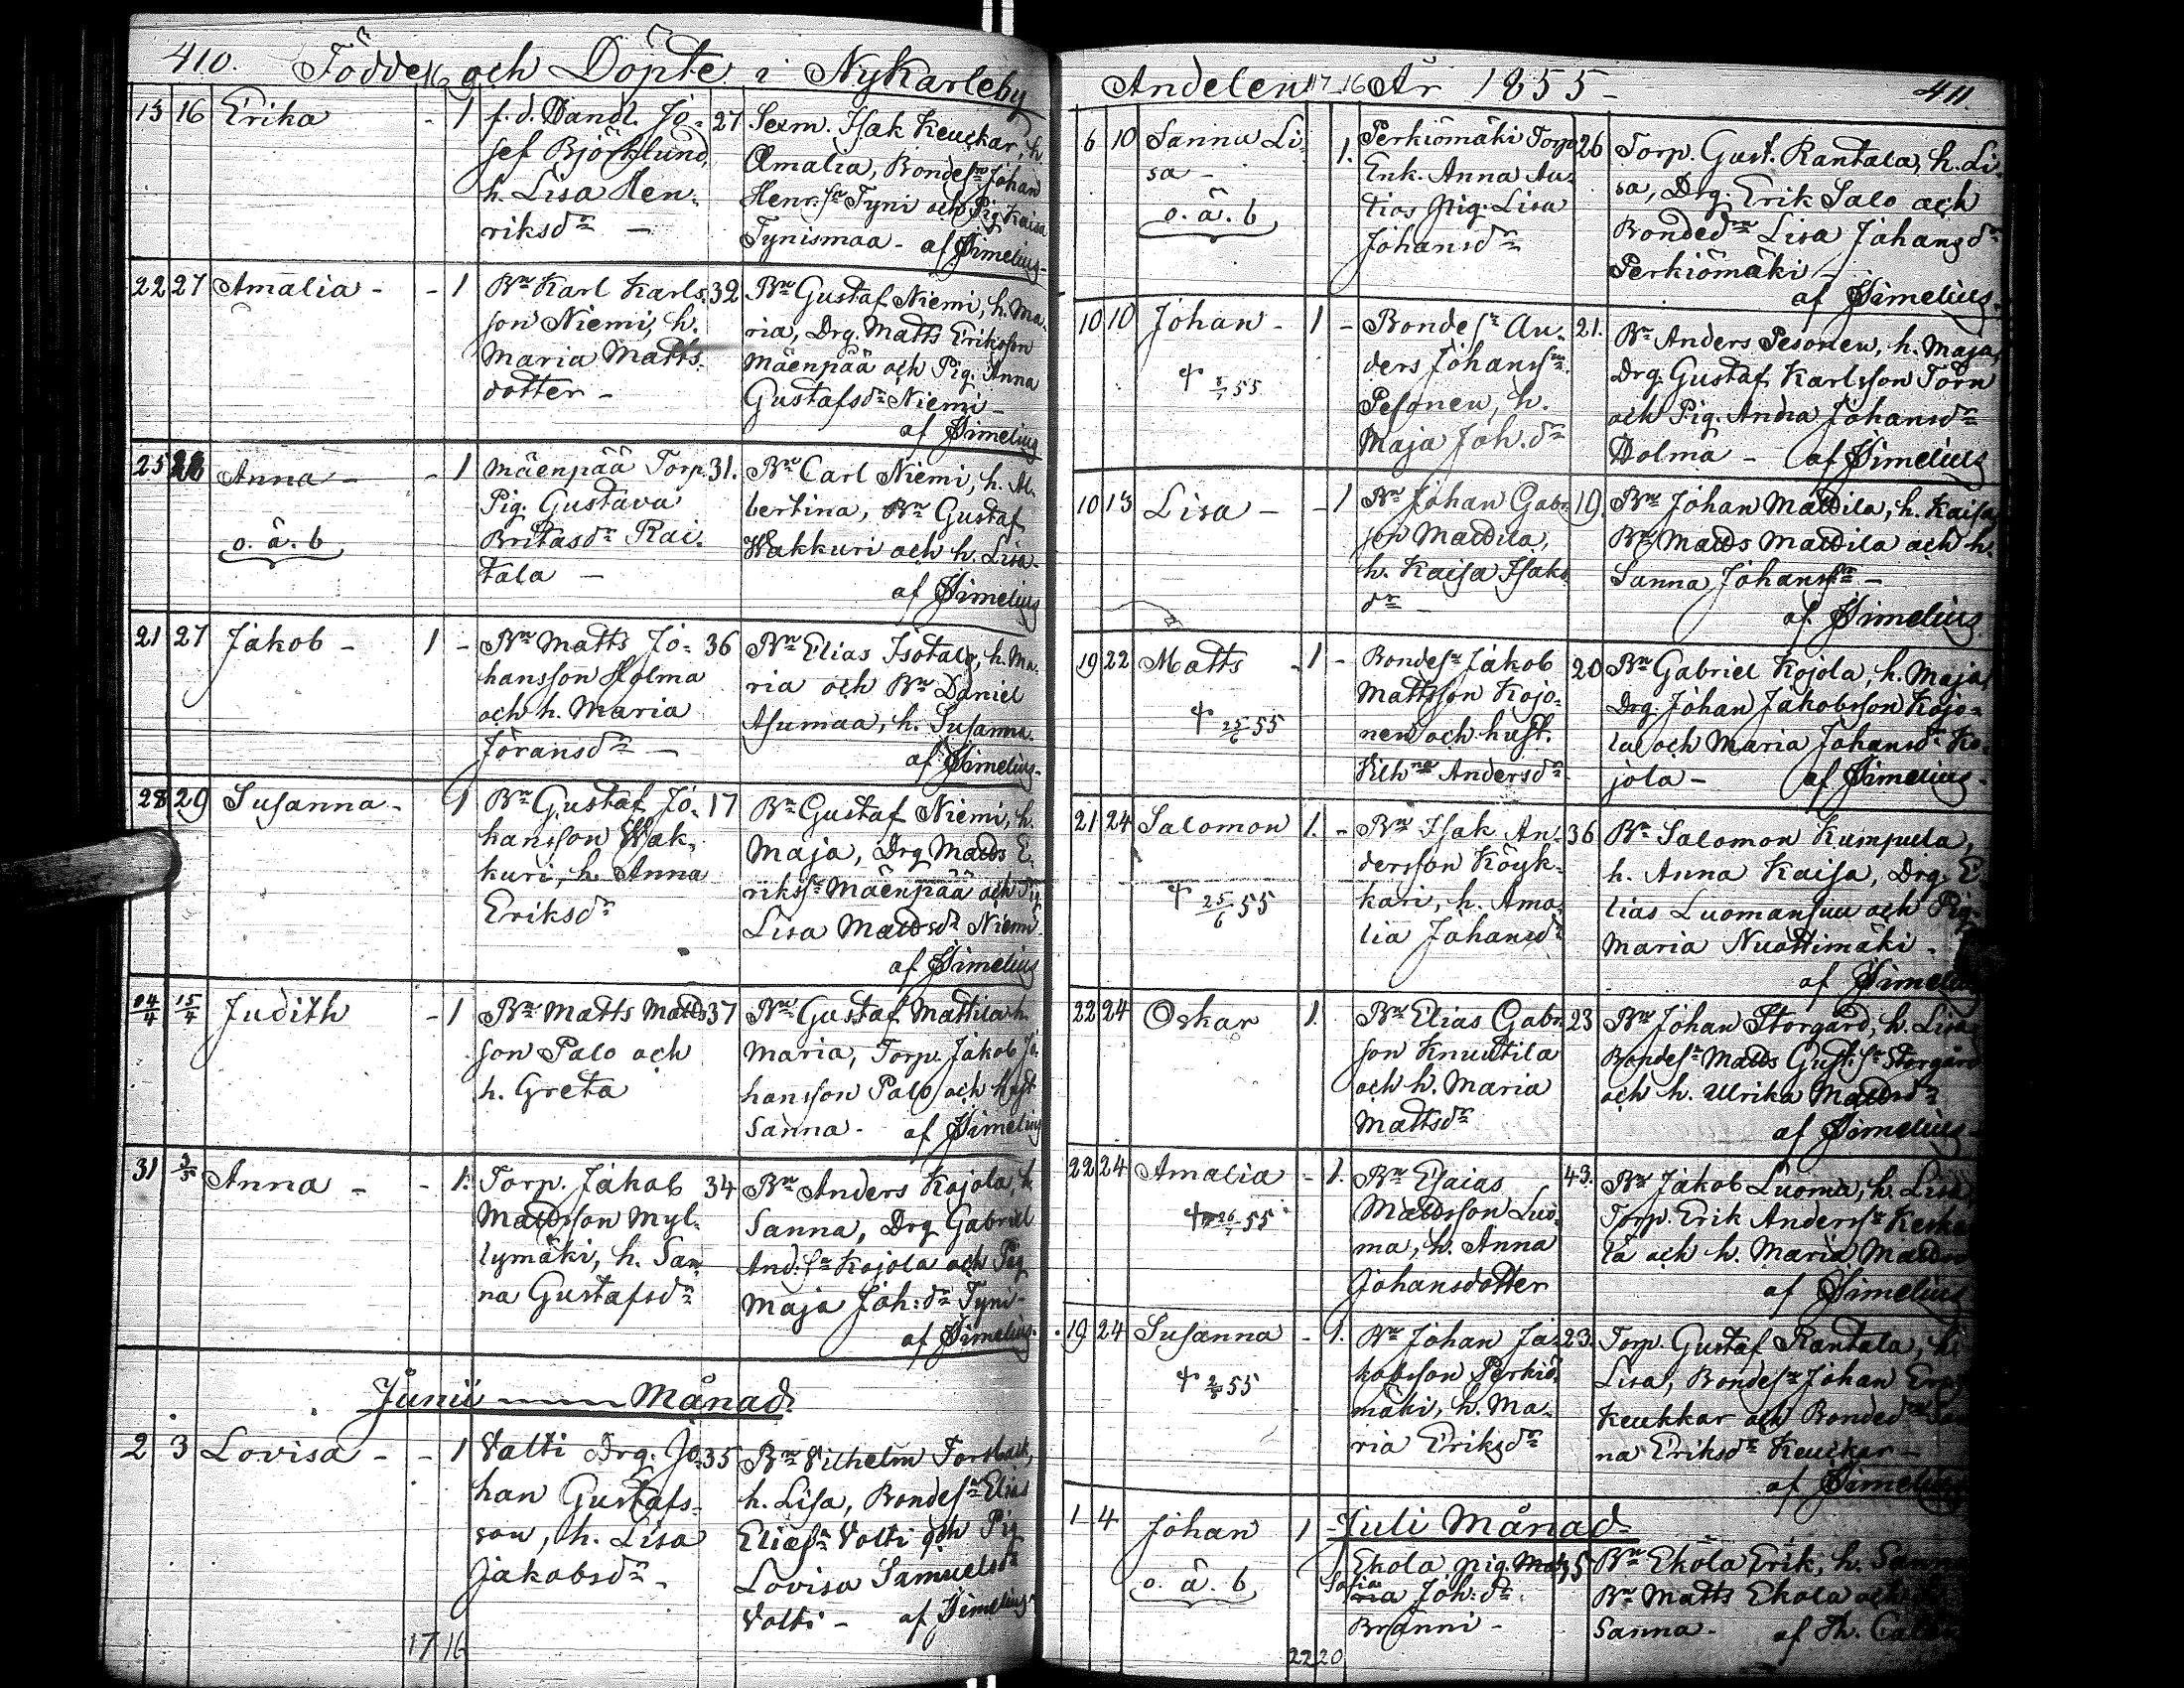 410. Födde och Döpte i NyKarleby
13 16 Erika - 1 f. d. Handl. Jo- 27 Sexm. Isak Keuckar, h.
sef Björklund, Amalia, Bondesn Johan
h. Lisa Hen- Henr. sn Tyni och Pig. Kaisa
riksdr - Tynismaa - af Simelius
22 27 Amalia - - 1 Bn Karl Karls- 32 Bn Gustaf Niemi, h. Ma-
son Niemi, h. ria, Drg. Matts Eriksson
Maria Matts- Mäenpää och Pig. Anna
dotter - Gustafsdr Niemi -
af Simelius
25 28 Anna - - 1 Mäenpää Torp. 31. Bn Carl Niemi, h. Al-
Pig. Gustava bertina, Bn Gustaf
o. ä. b Britasdr Rai- Wakkuri och h. Lisa -
tala - af Simelius
21 27 Jakob - 1 - Bn Matts Jo- 36 Bn Elias Isotalo, h. Ma-
hansson Holma ria och Bn Daniel
och h. Maria Asumaa, h. Susanna.
Göransdr - af Simelius
28 29 Susanna - 1 Bn Gustaf Jo- 17 Bn Gustaf Niemi, h.
hansson Wak- Maja, Drg Matts E-
kuri, h. Anna rikssn Mäenpää och Pig
Eriksdr Lisa Mattsdr Niemi
af Simelius
04/4 15/4 Judith - 1 Bn Matts Matts 37 Bn Gustaf Mattila h.
son Palo och Maria, Torp. Jakob Jo-
h. Greta hansson Palo och hust.
Sanna - af Simelius
31 3/5 Anna - - 1. Torp. Jakob 34 Bn Anders Kojola, h.
Mattsson Myl- Sanna, Drg Gabriel
lymäki, h. San- And. sn Kojola och Pig
na Gustafsdr Maja Joh: dr Tyni -
af Simelius
Junii Månad
2 3 Lovisa - - 1 Vatti Drg. Jo- 35 Bn Vilhelm Forsback,
han Gustafs- h. Lisa, Bondesn Elias
son, h. Lisa Eliessn Volti och Pig
Jakobsdr - Lovisa Samuelsdr
Volti - af Simelius
17 16
Andelen 17 16 År 1855 - 411.
6 10 Sanna Li- 1. Perkiömäki Torp 26 Torp. Gust. Rantala, h. Li-
sa - Enk. Anna An- sa, Drg. Erik Salo och
o. ä. b tias pig. Lisa Bondedr Lisa Johansdr
Johansdr Perkiömäki -
af Simelius
10 10 Johan - 1 - Bondesn An- 21. Bn Anders Pesonen, h. Maja,
ders Johanssn Drg. Gustaf Karlsson Törn
55 Pesonen, h. och Pig. Anna Johansdr
Maja Joh. dr Holma - af Simelius
10 13 Lisa - - 1 Bn Johan Gabr. 19. Bn Johan Mattila, h. Kaisa
son Mattila, Bn Matts Mattila och h.
h. Kaisa Isaks Sanna Johanssn -
dr - af Simelius
19 22 Matts - 1 - Bondesn Jakob 20 Bn Gabriel Kojola, h. Maja,
Mattsson Kojo- Drg. Johan Jakobsson Kojo-
25/6 55 nen och hust. la och Maria Johansdr Ko-
Andersdr jola - af Simelius
21 24 Salomon 1. - Bn Isak An- 36 Bn Salomon Kumpula,
dersson Köyk- h. Anna Kaisa, Drg. E-
25/6 55 kari, h. Ama- lias Luomansuu och Pig-
lia Johansdr Maria Nuottimäki -
af Simelius
22 24 Oskar 1. Bn Elias Gabr. 23 Bn Johan Storgård, h. Lisa
son Knuutila Bondesn Matts Gust. sn Storgård
och h. Maria och h. Ulrika Mattsdr
Mattsdr af Simelius
22 24 Amalia - 1. Bn Esaias 43. Bn Jakob Luoma, h. Lisa,
Mattsson Luo- Torp. Erik Anderssn Keska
55 ma, h. Anna la och h. Maria
Johansdotter af Simelius
19 24 Susanna - 1. Bn Johan Ja- 23. Torp. Gustaf Rantala, h.
kobsson Perkiö- Lisa, Bondesn Johan
55 mäki, h. Ma- Keukkar och Bondedr San
ria Eriksdr na Eriksdr Keuckar -
af Simelius
Juli Månad
1 4 Johan 1 Ekola pig. Ma 35 Bn Ekola Erik, h. Sanna
o. ä. b Sofia ria Joh. dr Bn Matts Ekola och
Bränni - Sanna - af Th.
22 20